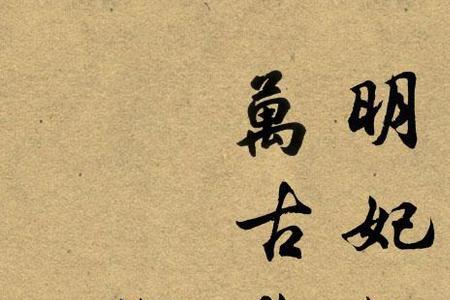 明妃
萬古